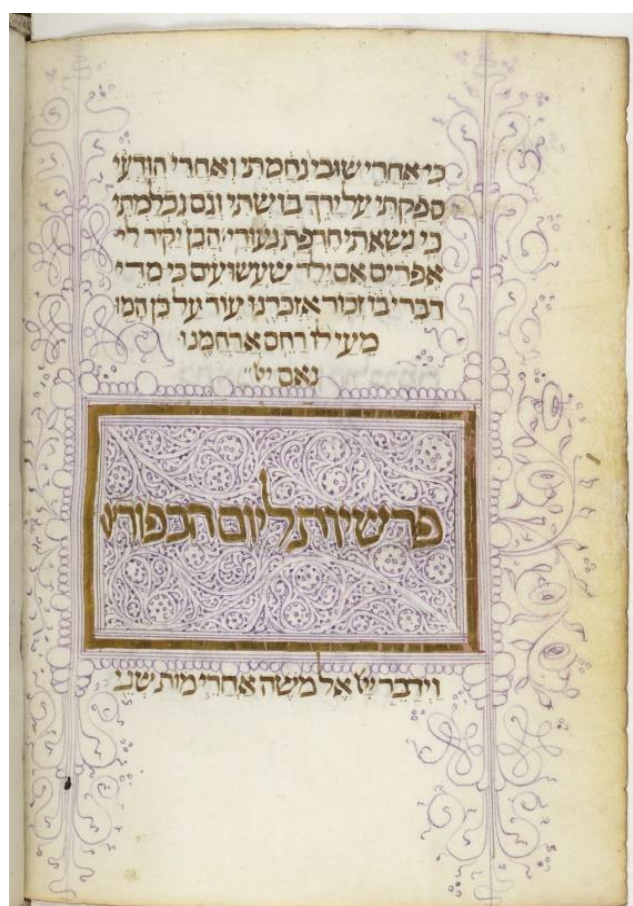 כי אחרי שובי נחמתי ואחרי הודעי
ספקתי על ירך בושתי וגם נכלמתי
כי נשאתי חרפת נעורי הבן יקר לי
אפרים אם ילד שעשועים כי מדי
דברי בו זכור אזכרנו עוד על כן המו
מעי לו רחם ארחמנו
נאם יי
פרשיות ליום הכפורים
וידבר יי אל משה אחרי מות שני